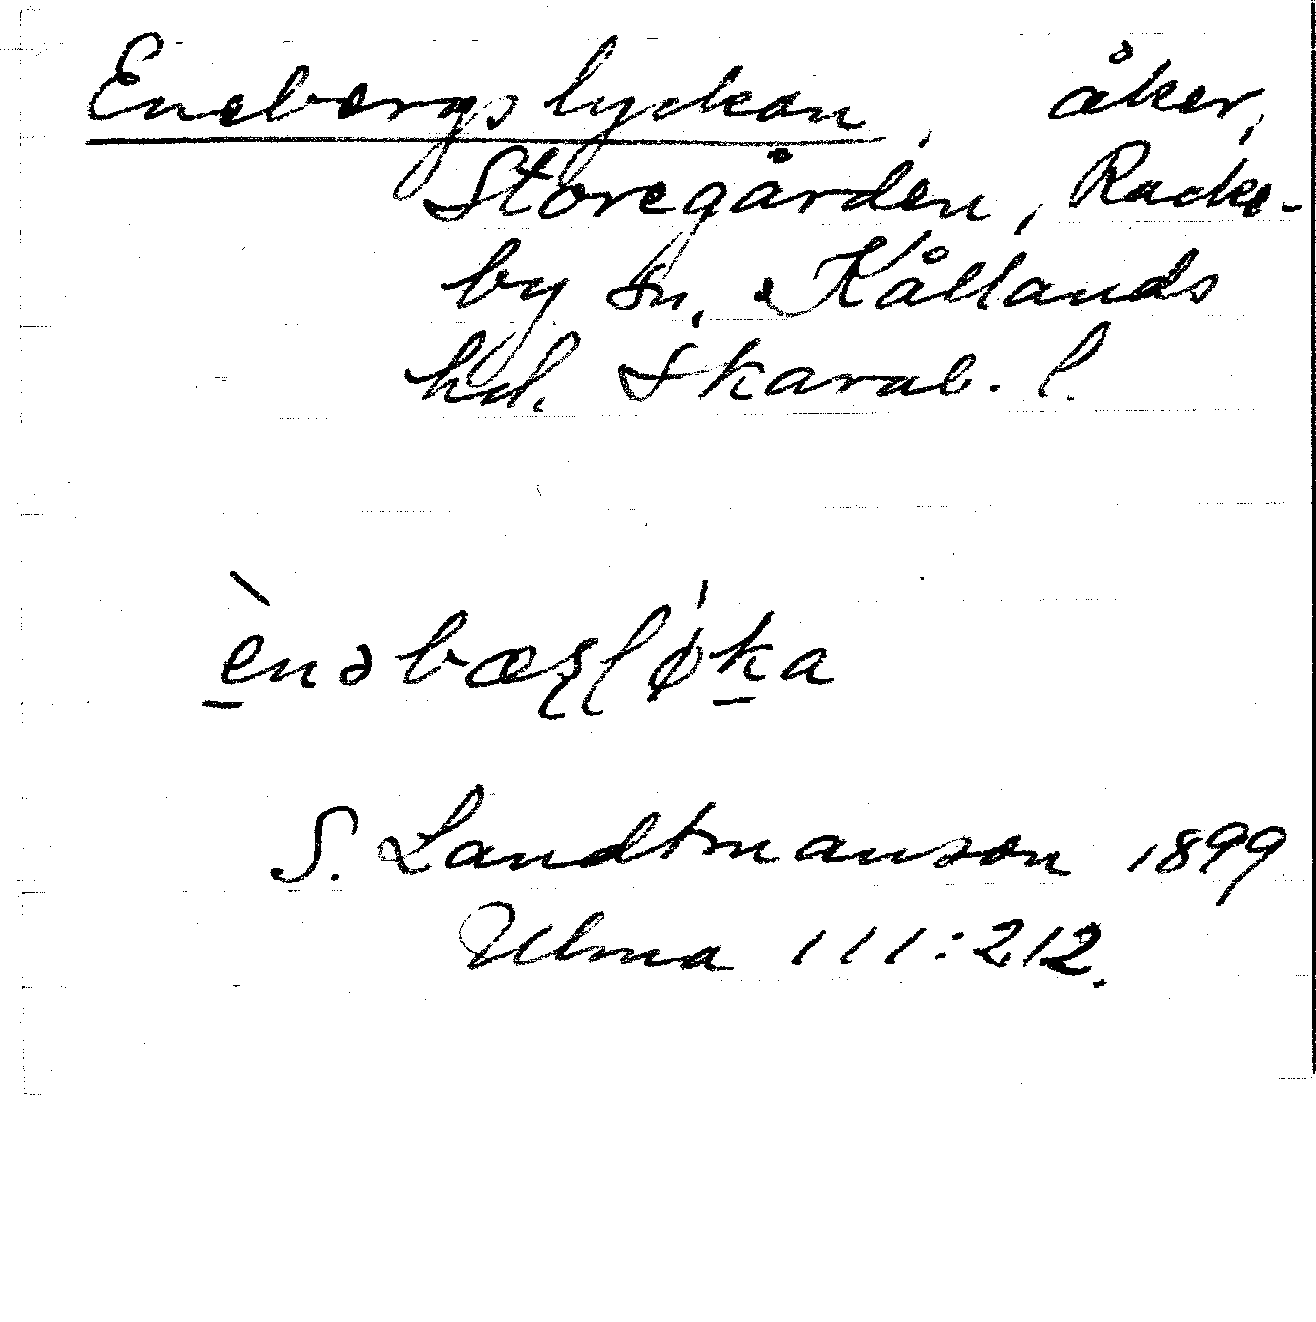 Enebergslyckan, åker,
Storegården, Racke-
by sn, Kållands
hd. Skarab. l.
ènəbæʂlø̍ka
S. Landtmanson 1899
Ulma 111:212.